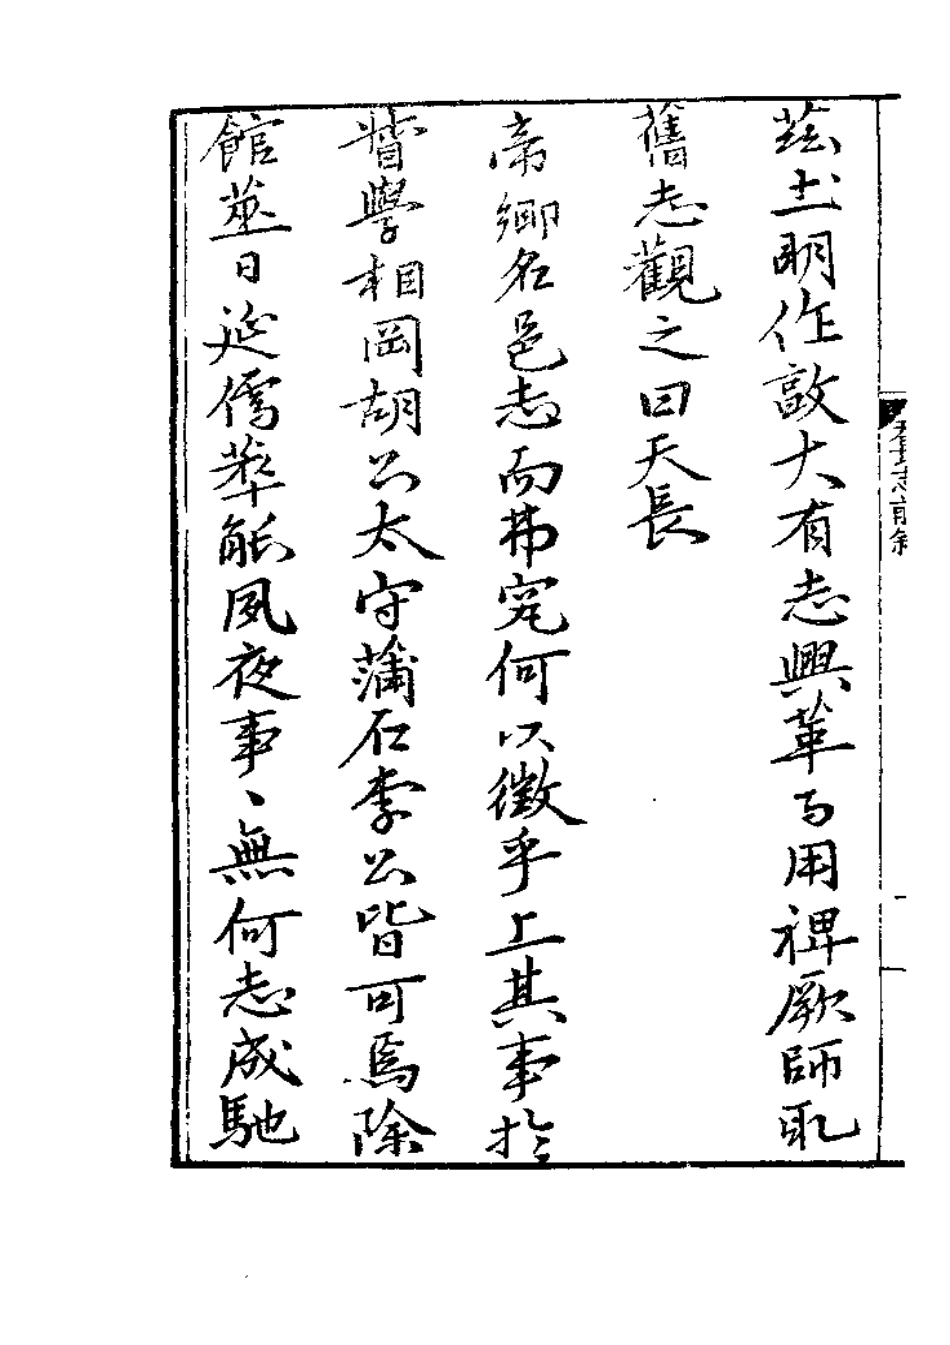 茲土明作敢大有志興革乃用禆厥師取
舊志觀之曰天長
帝鄉名邑志而弗完何以徵乎上其事於
督學相岡胡公太守蒲石李公皆可焉除
館蒞日延儒莘觚夙夜事〻無何志成馳
志前叙